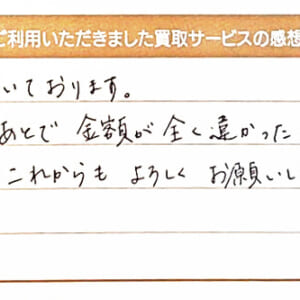 ご利用いただきました買取サービスの感想
いております。
あとで 金額が 全く違かった
これからも よろしく お願いし